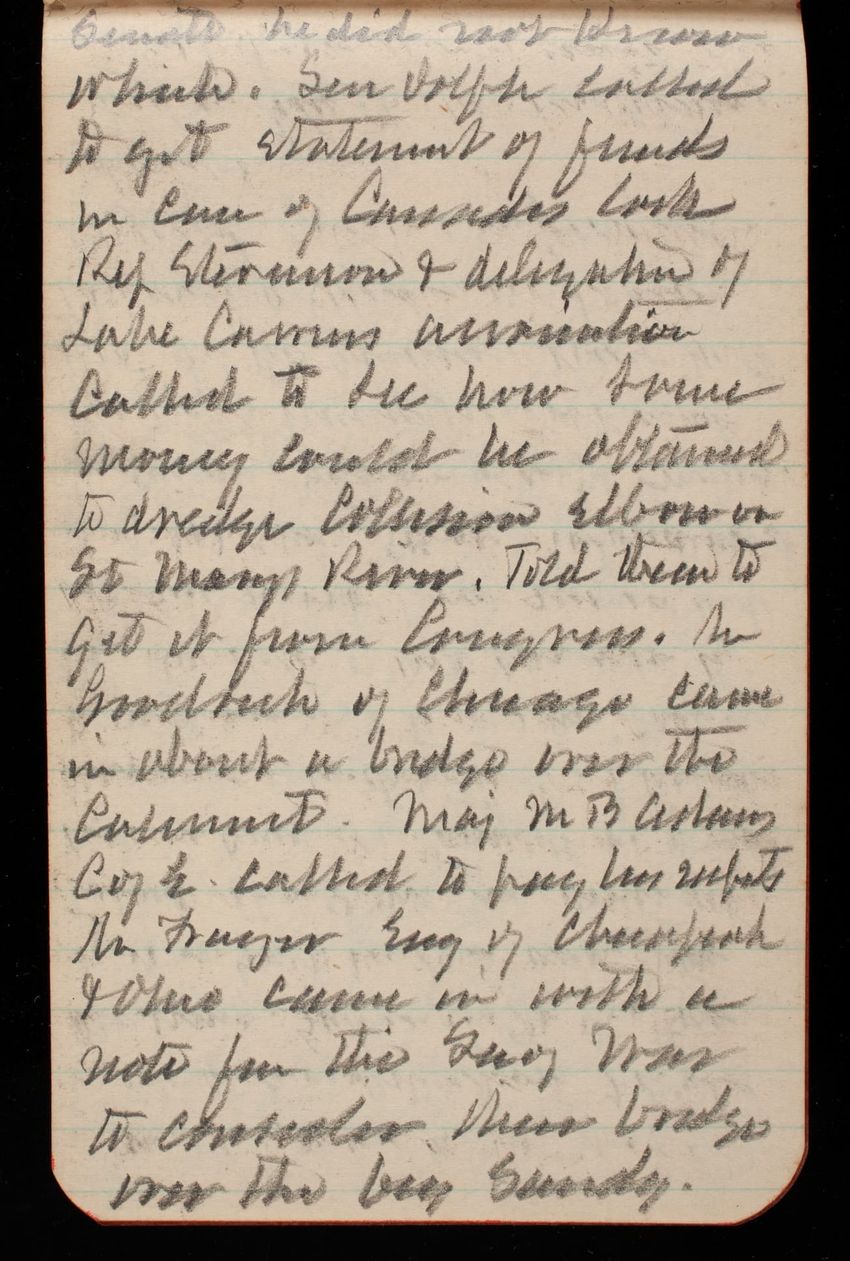 Senate he did not know
which. Sen Dolph called
to get statement of funds
in case of Cascades lock
Rep Stevenson & delegation of
Lake Carriers association
called to see how some
money could be obtained
to dredge Collision Elbow in
St Marys River. Told them to
get it from Congress. Mr
Goodrich of Chicago came
in about a bridge over the
Calumet. Maj M B Adams
C of E. called to pay his respects
Mr Frazier Eng of Chesapeak
& Ohio came in with a
note from the Secy War
to consider their bridge
over the big Sandy.